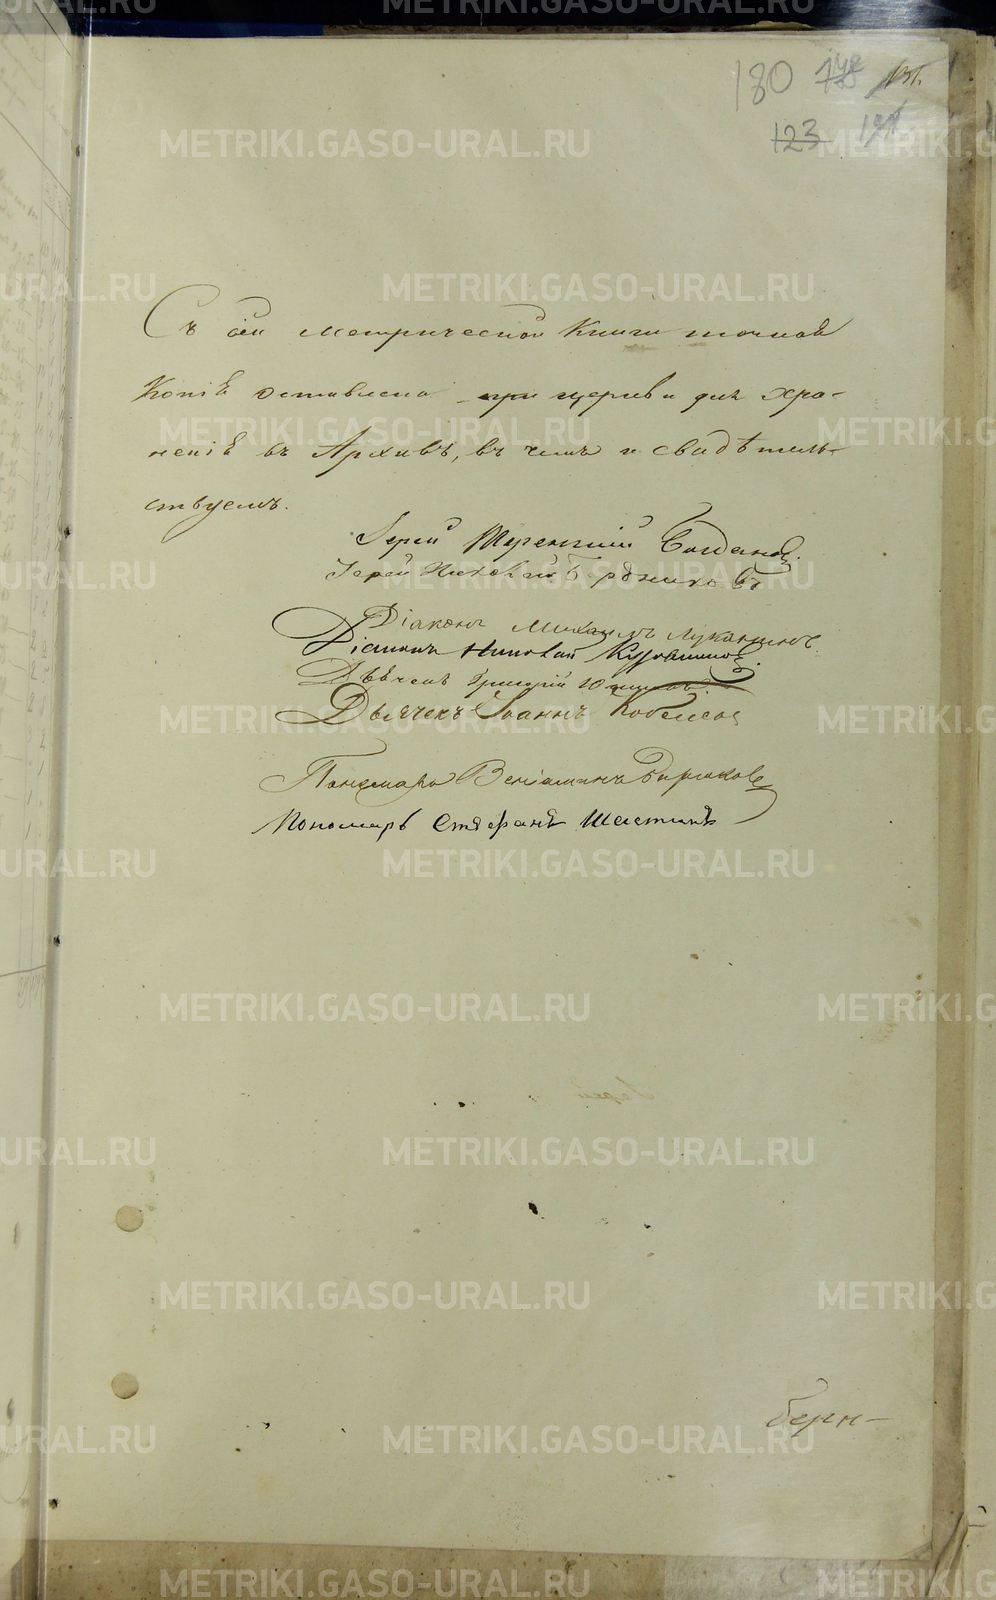 180
123
Съ сей метрической Книги точная
Копія оставлена при церкви для хра-
ненія въ Архивѣ, въ чемъ и свидѣтель-
ствуемъ.
Іерей Терентій Богдановъ.
Іерей Николай Бердниковъ
Діаконъ Михаилъ Луканинъ.
Діаконъ Николай
Дьячекъ Григорій
Дьячекъ Іоаннъ
Пономарь Веніаминъ Бирюковъ
Пономарь Стефанъ Шестинъ
берн-
METRIKI.GASO-URAL.RU